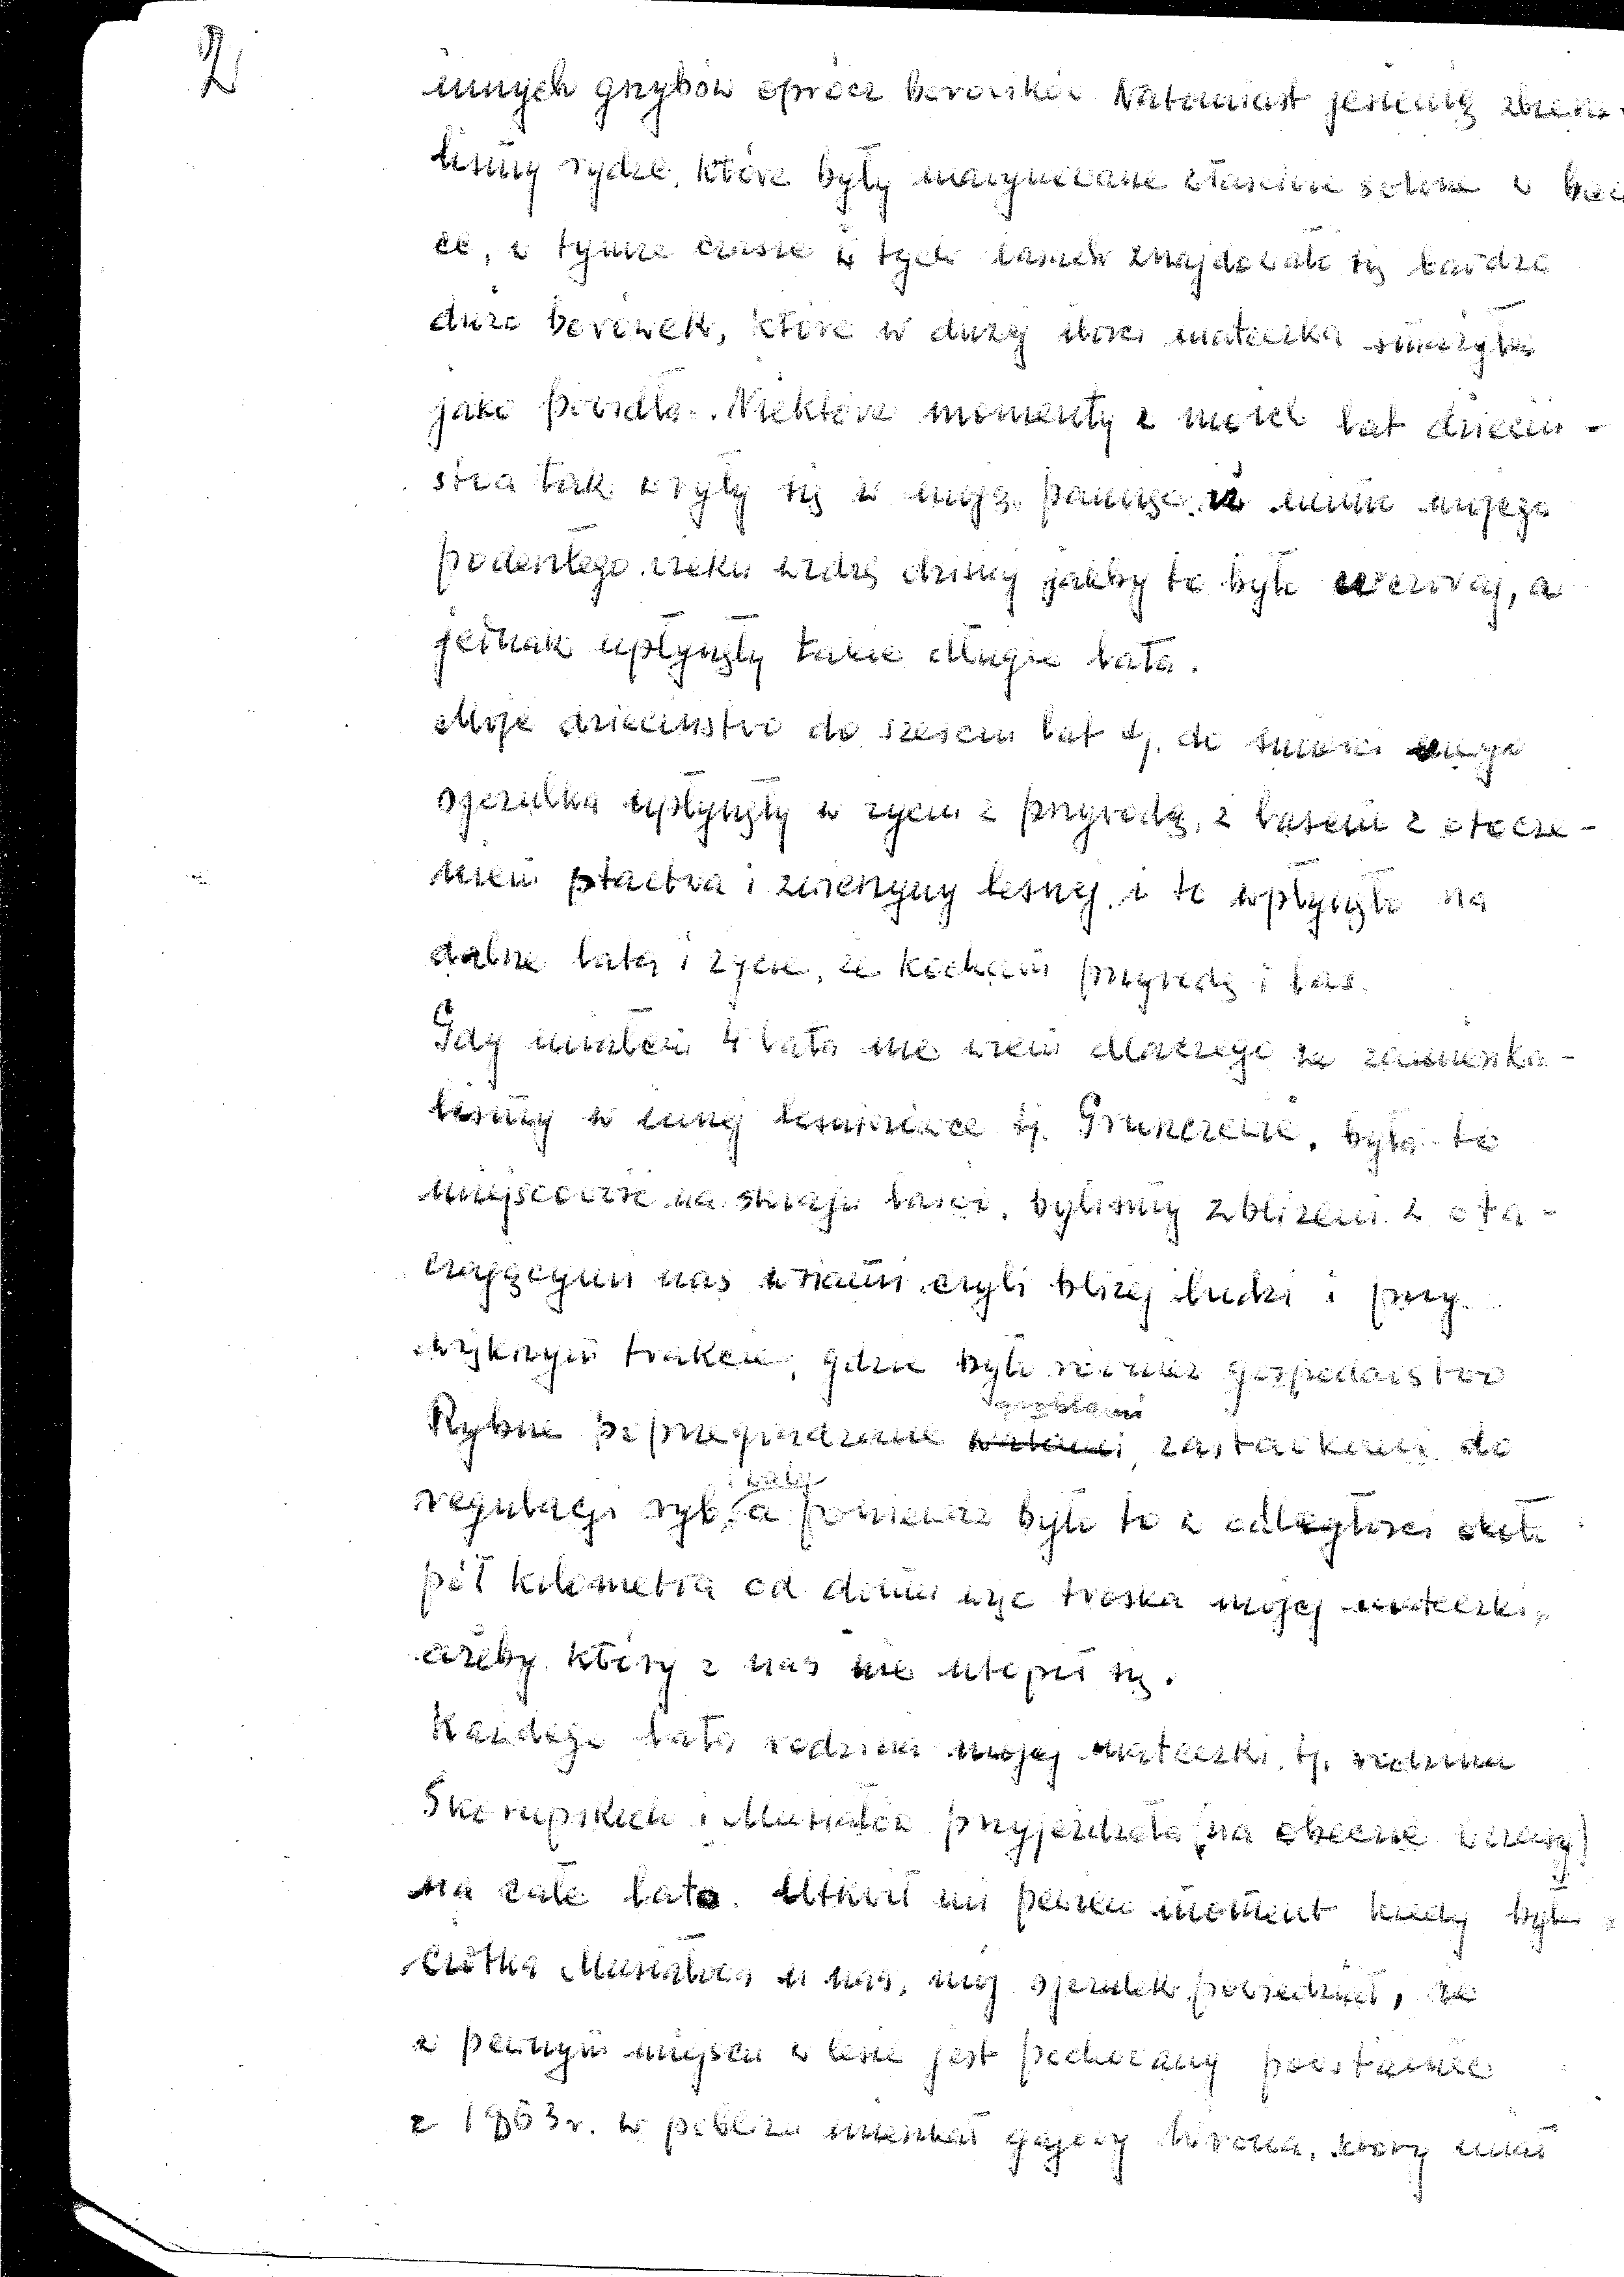 2
innych grzybów oprócz borowików Natomiast jesienią zbiera
liśmy rydze, które były marynowane właściwie solone w becz
ce, w tymże czasie w tych lasach znajdowało się bardzo
dużo borówek, które w dużej ilości mateczka smażyła
jako powidła. Niektóre momenty z moich lat dziecin-
stwa tak wryły się w moją pamięć, iż mimo mojego
podeszłego wieku widzę dzisiaj jakby to było wczoraj, a
jednak upłynęły takie długie lata.
Moje dzieciństwo do sześciu lat tj. do śmierci mojego
ojczulka upłynęły w życiu z przyrodą, z lasem z otocze-
niem ptactwa i zwierzyny leśnej, i to wpłynęło na
dalsze lata i życie, że kocham przyrodę i las.
Gdy miałem 4 lata nie wiem dlaczego że zamieszka-
liśmy w innej leśniczówce tj. było to
miejscowość na skraju lasów, byliśmy zbliżeni z ota-
czającymi nas wsiami czyli bliżej ludzi i przy
większym trakcie, gdzie było również gospodarstwo
Rybne poprzegradzane groblami zastawkami do
regulacji ryb, i wody a ponieważ było to w odległości około
pół kilometra od domu więc troska mojej mateczki,
ażeby który z nas nie utopił się.
Każdego lata rodzina mojej mateczki, tj. rodzina
Skorupskich i Musiałów przyjeżdżała (na obecne wczasy)
na całe lato. Utkwił mi pewien moment kiedy była
ciotka Musiałowa u nas, mój ojczulek powiedział, że
w pewnym miejscu w lesie jest pochowany powstaniec
z 1863 r. w pobliżu mieszkał gajowy Wrona, który miał